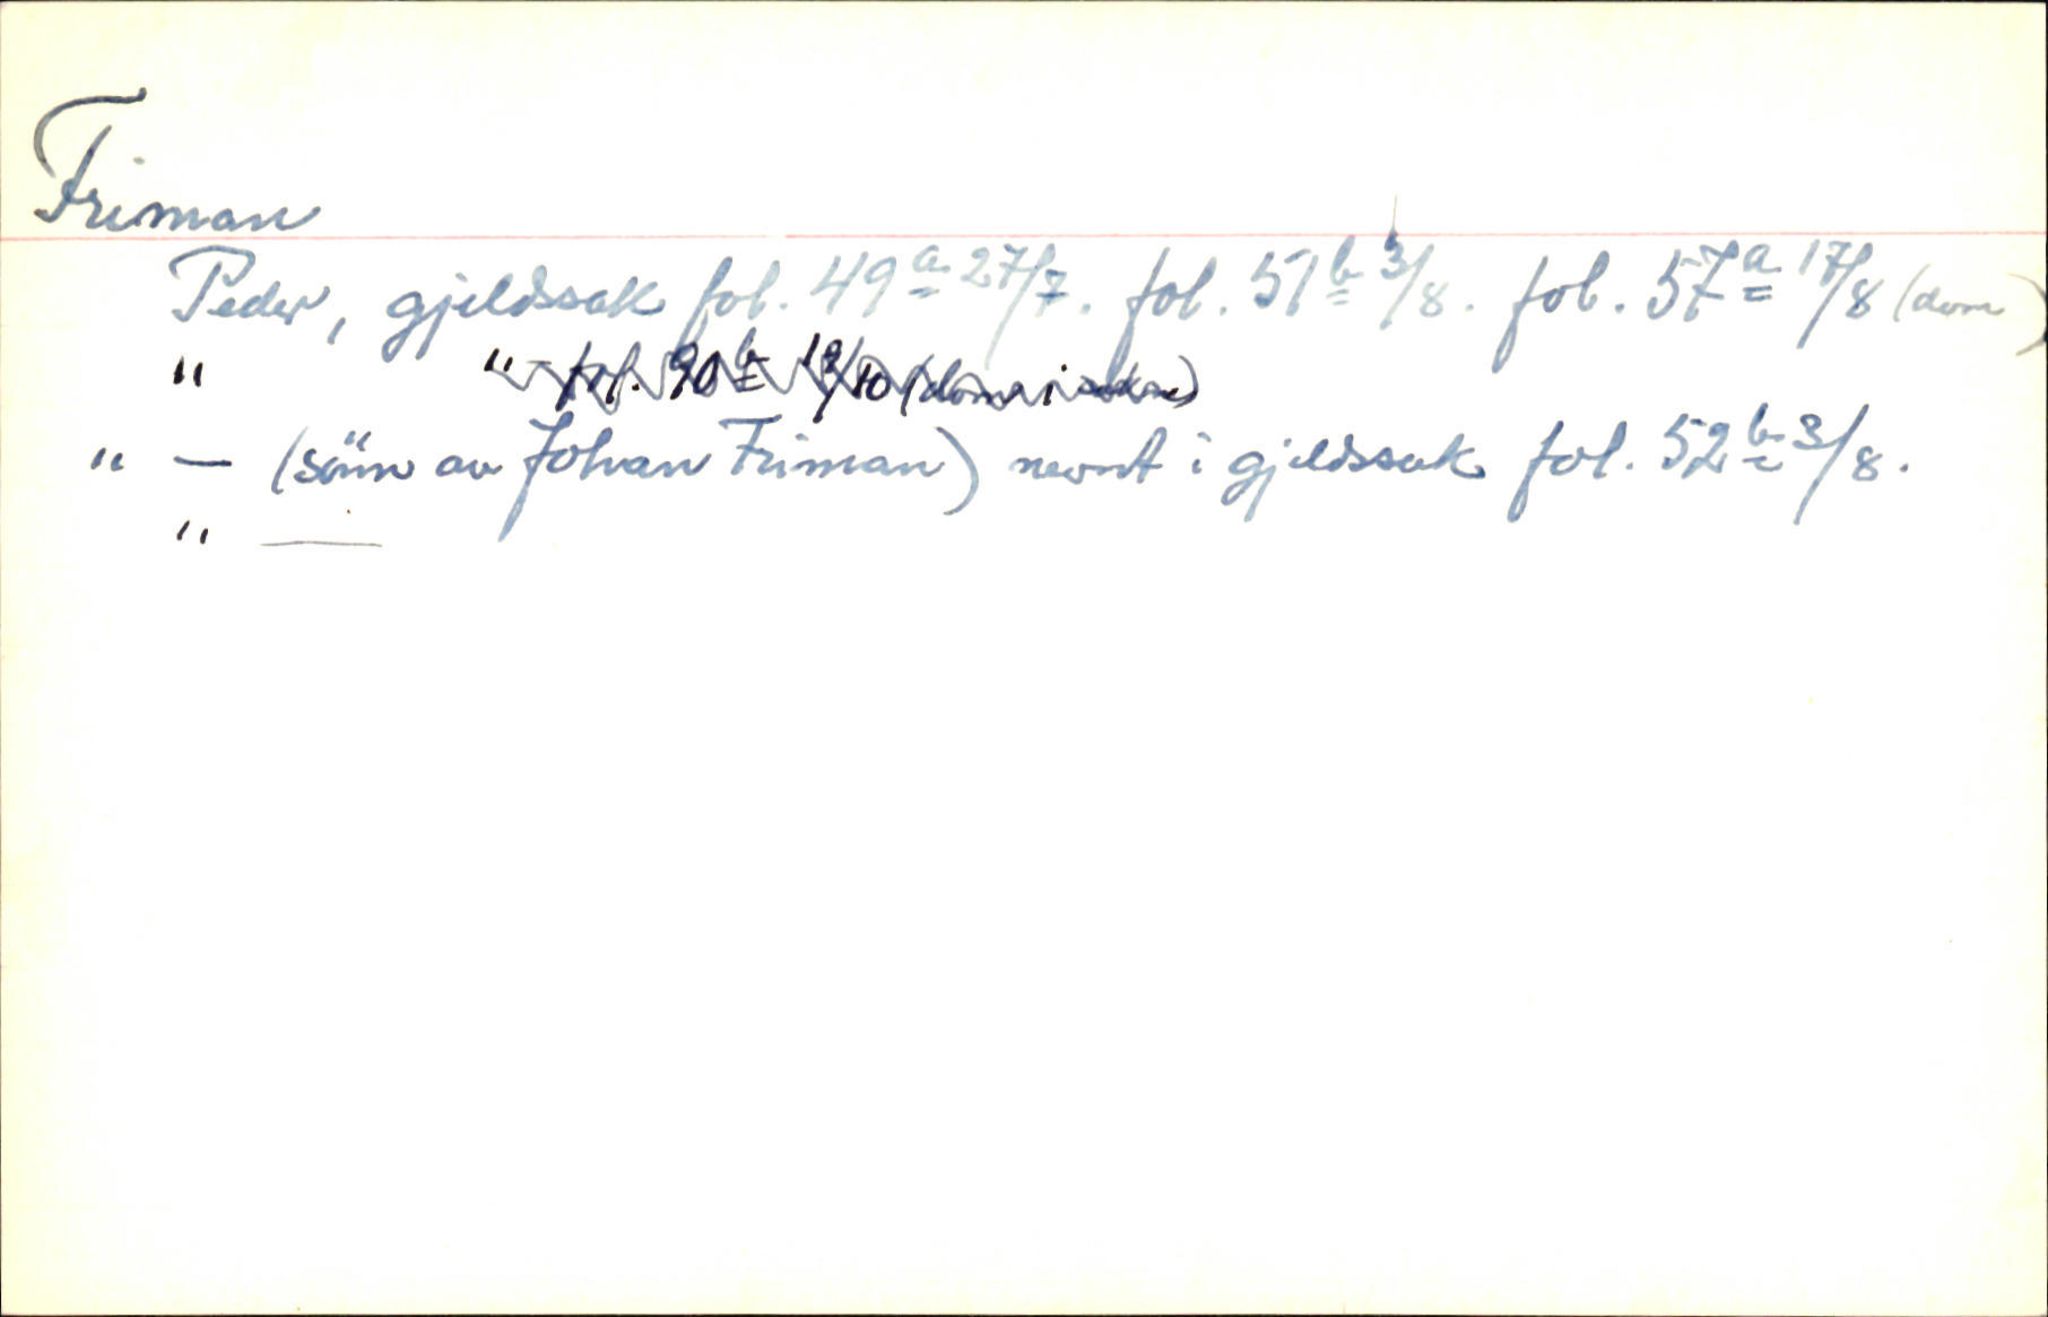 Friman
Peder, gjeldssak fol. 49a 27/7. fol. 51b 3/8. fol. 57a 17/8 (dom)
" " fol. 90b 19/10 (dom i saken)
" — (sönn av Johan Friman) nevnt i gjeldssak fol. 52b 3/8.
" —